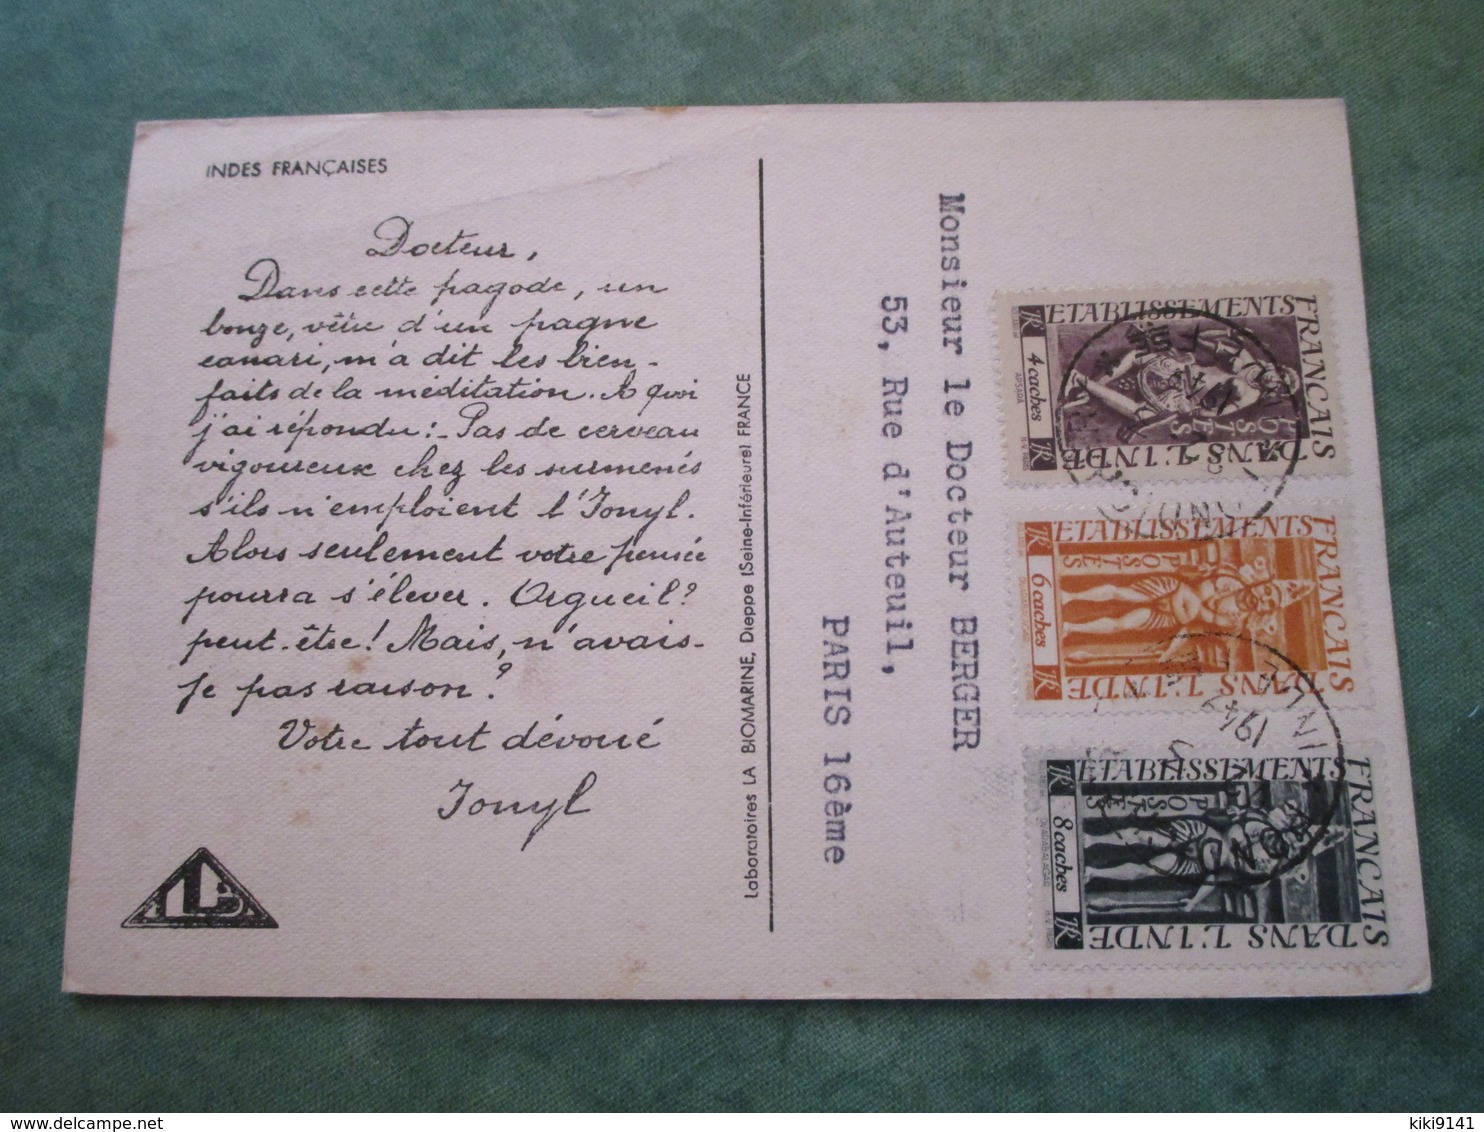 INDES FRANÇAISES
Docteur,
Dans cette pagode, un
bonze, vêtu d'un pagne
canari, m'a dit les bien-
faits de la méditation. A quoi
j'ai répondu:- Pas de cerveau
vigoureux chez les surmenés
s'ils n'emploient l'Ionyl.
Alors seulement votre pensée
pourra s'élever. Orgueil?
peut-être! Mais, n'avais-
je pas raison?
Votre tout dévoué
Ionyl
Laboratoires LA BIOMARINE, Dieppe (Seine-Inférieure) FRANCE
Monsieur le Docteur BERGER
53, Rue d'Auteuil,
PARIS 16ème
ETABLISSEMENTS
FRANCAIS
DANS L'INDE
POSTES
4 caches
APSARA
ETABLISSEMENTS
FRANCAIS
DANS L'INDE
POSTES
6 caches
ETABLISSEMENTS
FRANCAIS
DANS L'INDE
POSTES
8 caches
1949
www.delcampe.net
kiki9141